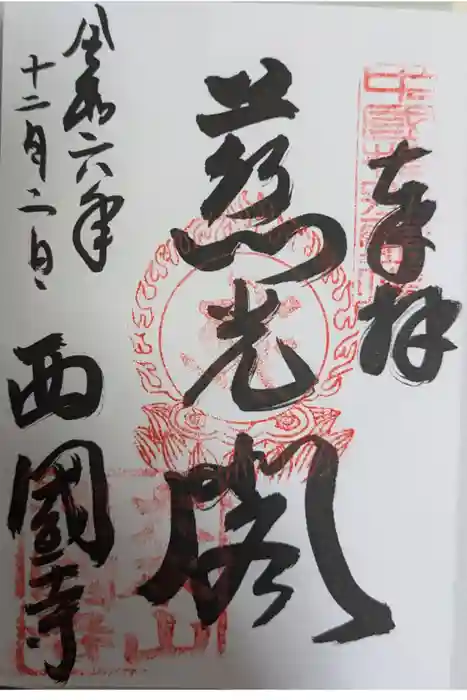 奉拝
慈光閣
令和六年
十二月二日
西國寺